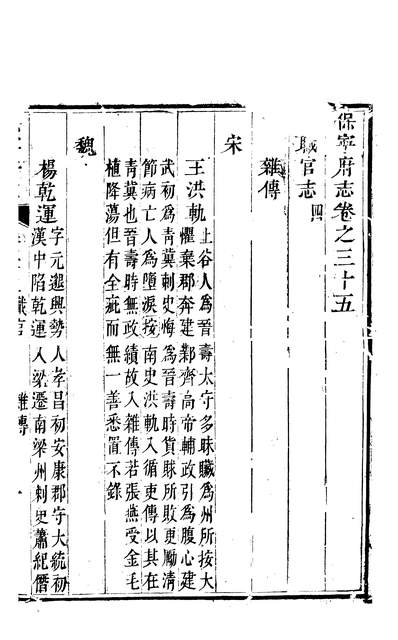 保寧府志卷之三十五
職官志四
雜傳
宋
王洪軌上谷人為晉壽太守多昧贓為州所按大
懼棄郡奔建鄴齊高帝輔政引為腹心建
武初為青冀刺史悔為晉壽時貨賕所敗更勵清
節病亡人為墮淚按南史洪軌入循吏傳以其在
青冀也晉壽時無政績故入雜傳若張燕受金毛
植降蕩但有全疵而無一善悉置不錄
魏
楊乾運字元邈興勢人孝昌初安康郡守大統初
漢中陷乾運入梁遷南梁州刺史蕭紀僭
職官
雜傳